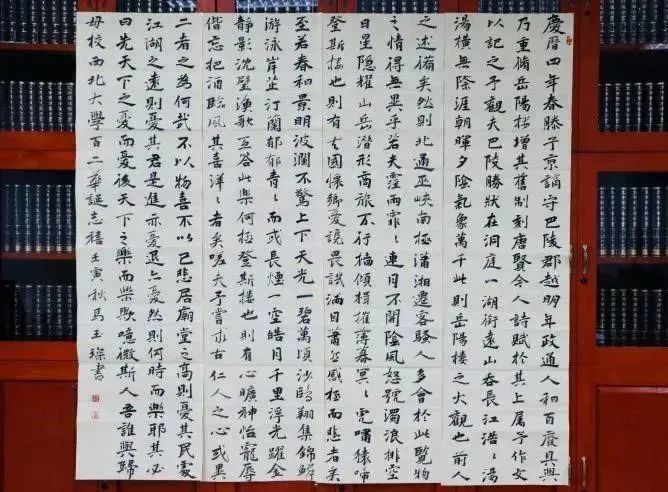 慶曆四年春滕子京謫守巴陵郡越明年政通人和百廢具興
乃重脩岳陽樓增其舊制刻唐賢今人詩賦於其上屬予作文
以記之予觀夫巴陵勝狀在洞庭一湖銜遠山吞長江浩〻湯
湯橫無際涯朝暉夕陰氣象萬千此則岳陽樓之大觀也前人
之述備矣然則北通巫峽南極瀟湘遷客騷人多會於此覽物
之情得無異乎若夫霪雨霏〻連月不開陰風怒號濁浪排空
日星隱耀山岳潛形商旅不行檣傾楫摧薄暮冥〻虎嘯猿啼
登斯樓也則有去國懷鄉憂讒畏譏滿目蕭然感極而悲者矣
至若春和景明波瀾不驚上下天光一碧萬頃沙鷗翔集錦鱗
游泳岸芷汀蘭郁郁青〻而或長煙一空皓月千里浮光躍金
靜影沈璧漁歌互答此樂何極登斯樓也則有心曠神怡寵辱
偕忘把酒臨風其喜洋〻者矣嗟夫予嘗求古仁人之心或異
二者之為何哉不以物喜不以己悲居廟堂之高則憂其民處
江湖之遠則憂其君是進亦憂退亦憂然則何時而樂耶其必
曰先天下之憂而憂後天下之樂而樂歟噫微斯人吾誰與歸
母校西北大學百二華誕志禧壬寅秋馬玉琛書